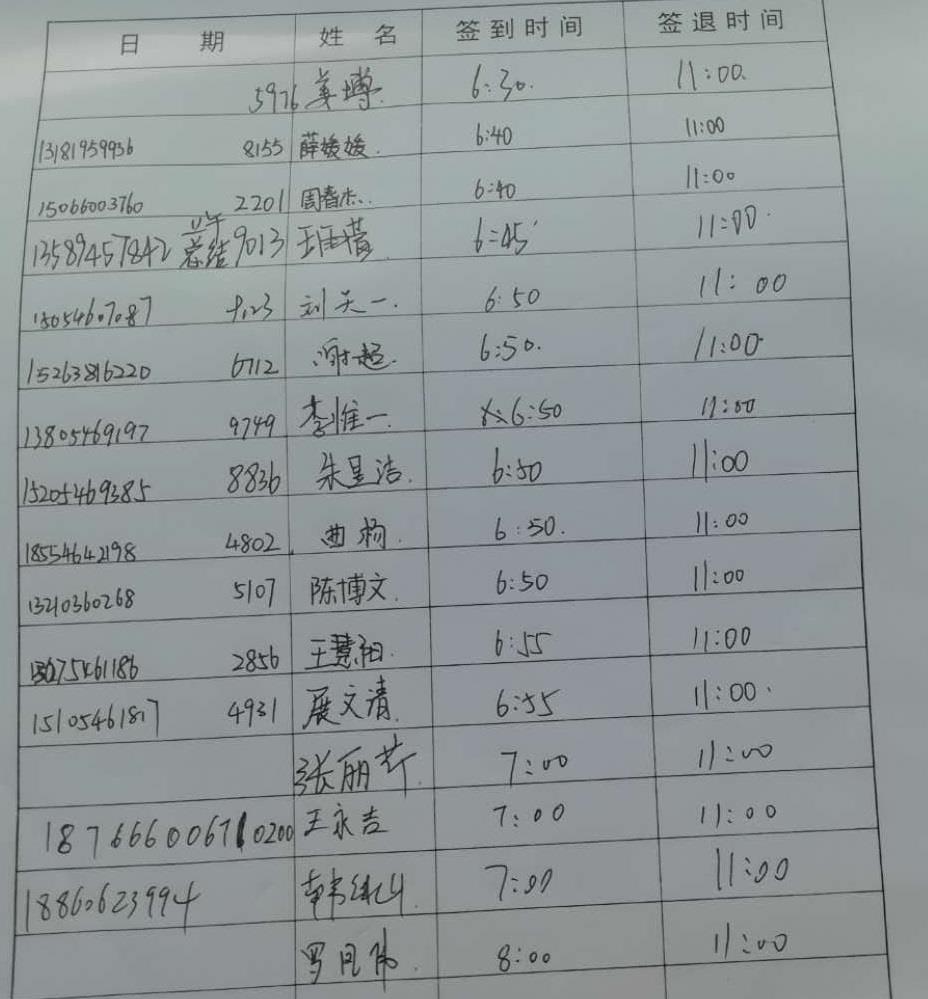 日期 姓名 签到时间 签退时间
5976 6:30. 11:00.
13181959936 8155 薛媛媛. 6:40 11:00
15066003760 2201 周春杰. 6:40 11:00
上午
13589457842 总结 9013 6:45 11:00
刘天一. 6:50 11:00
15263816220 6712 谢超. 6:50. 11:00
13805469197 9749 李惟一. 6:50 11:00
15205469385 8836 朱星洁. 6:50 11:00
18554642198 4802 曲杨. 6:50. 11:00
13210360268 5107 陈博文. 6:50 11:00
2856 王慧 6:55 11:00
15105461817 4931 展文清. 6:55 11:00.
张丽芹. 7:00 11:00
0200 王永吉 7:00 11:00
18860623994 7:00 11:00
罗 8:00 11:00